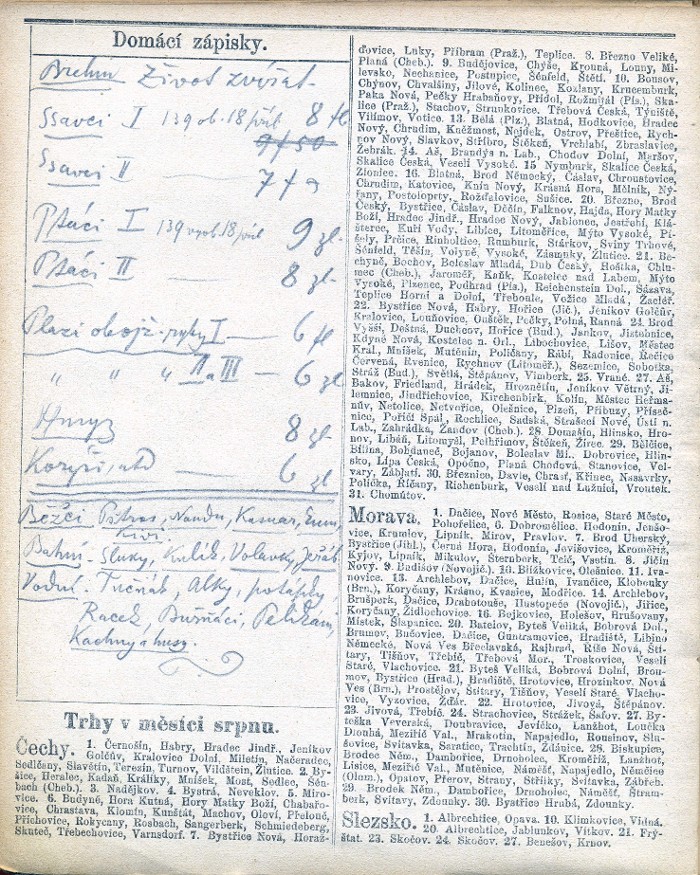 Domácí zápisky.
Brehm Život zvířat.
Ssavci I 139 ob. 18 příl 8 zl
Ssavci II 7 zl
Ptáci I 139 vyob. 18 příl 9 zl.
Ptáci II 8 zl.
Plazi obojž. ryby I — 6 zl
" " " II a III — 6 zl
Hmyz 8 zl
Korýši atd 6 zl
Běžci Pštros, Nandu, Kasuar, Emu,
Kivi.
Bahní Sluky, Kulík, Volavky, Jeřáb
Vodní. Tučňák, Alky, potápky,
Racek, Buřňáci, Pelikáni,
Kachny a husy.
Trhy v měsíci srpnu.
Čechy. 1. Černošín, Habry, Hradec Jindř., Jeníkov
Golčův, Kralovice Dolní, Miletín, Načeradec,
Sedlčany, Slavětín, Terezín, Turnov, Vildštein, Žlutice. 2. By-
šice, Heralec, Kadaň, Králíky, Mníšek, Most, Sedlec, Šön-
bach (Cheb.). 3. Nadějkov. 4. Bystrá, Neveklov. 5. Miro-
vice. 6. Budyně, Hora Kutná, Hory Matky Boží, Chabařo-
vice, Chrastava, Klomín, Kunštát, Machov, Oloví, Přelouč,
Příchovice, Rokycany, Rosbach, Sangerberk, Schmiedeberg,
Skuteč, Třebechovice, Varnsdorf. 7. Bystřice Nová, Horaž-
ďovice, Luky, Příbram (Praž.), Teplice. 8. Březno Veliké,
Planá (Cheb.). 9. Budějovice, Chýše, Krouná, Louny, Mi-
levsko, Nechanice, Postupice, Šénfeld, Štětí. 10. Bousov,
Chýnov, Chvalšiny, Jílové, Kolinec, Kozlany, Krucemburk,
Paka Nová, Pečky Hrabaňovy, Přídol, Rožmitál (Pís.), Ska-
lice (Praž.), Stachov, Strunkovice, Třebová Česká, Týniště,
Vilímov, Votice. 13. Bělá (Plz.), Blatná, Hodkovice, Hradec
Nový, Chrudim, Kněžmost, Nejdek, Ostrov, Přeštice, Rych-
nov Nový, Slavkov, Stříbro, Štěkeň, Vrchlabí, Zbraslavice,
Žebrák. 14. Aš, Brandýs n. Lab., Chodov Dolní, Maršov,
Skalice Česká, Veselí Vysoké. 15 Nymburk, Skalice Česká,
Zlonice. 16. Blatná, Brod Německý, Čáslav, Chroustovice,
Chrudim, Katovice, Knín Nový, Krásná Hora, Mělník, Ný-
řany, Postoloprty, Rožďalovice, Sušice. 20. Březno, Brod
Český, Bystřice, Čáslav, Děčín, Falknov, Hajda, Hory Matky
Boží, Hradec Jindř., Hradec Nový, Jablonec, Jestřebí, Klá-
šterec, Kuří Vody, Libice, Litoměřice, Mýto Vysoké, Pí-
šely, Prčice, Rinholtice, Rumburk, Stárkov, Sviny Trhové,
Šénfeld, Těšín, Volyně, Vysoké, Zásmuky, Žlutice. 21. Be-
chyně, Bochov, Boleslav Mladá, Dub Český, Hoštka, Chlu-
mec (Cheb.), Jaroměř, Kaňk, Kostelec nad Labem, Mýto
Vysoké, Plzenec, Podhrad (Pís.), Reichenstein Dol., Sázava,
Teplice Horní a Dolní, Třeboule, Vežice Mladá, Žacléř.
22. Bystřice Nová, Habry, Hořice (Jič.), Jeníkov Golčův,
Kralovice, Louňovice, Ouštěk, Pečky, Polná, Ranná 24. Brod
Vyšší, Deštná, Duchcov, Hořice (Bud.), Jankov, Jistebnice,
Kdyně Nová, Kostelec n. Orl., Libochovice, Lišov, Městec
Král., Mníšek, Mutěnín, Poličany, Rábí, Radonice, Řečice
Červená, Rvenice, Rychnov (Litoměř.), Sezemice, Sobotka,
Stráž (Bud.), Světlá, Štěpánov, Vimberk. 25. Vrané. 27. Aš,
Bakov, Friedland, Hrádek, Hroznětín, Jeníkov Větrný, Ji-
lemnice, Jindřichovice, Kirchenbirk, Kolín, Městec Heřma-
nův, Netolice, Netvořice, Olešnice, Plzeň, Příbuzy, Příseč-
nice, Poříčí Spál., Rochlice, Sadská, Strašecí Nové, Ústí n.
Lab., Zahrádka, Žandov (Cheb.). 28. Domašín, Hlinsko, Hro-
nov, Libáň, Litomyšl, Pelhřimov, Štěkeň, Žírec. 29. Bělčice,
Bílina, Bohdaneč, Bojanov, Boleslav Ml.. Dobrovice, Hlin-
sko, Lípa Česká, Opočno, Planá Chodová, Stanovice, Vel-
vary, Záblatí. 30. Březnice, Davle, Chrast, Křinec, Nasavrky,
Polička, Říčany, Richenburk, Veselí nad Lužnicí, Vroutek.
31. Chomútov.
Morava. 1. Dačice, Nové Město, Rosice, Staré Město,
Pohořelice, 6. Dobromělice. Hodonín, Jenšo-
vice, Krumlov, Lipník, Mirov, Pravlov. 7. Brod Uherský,
Bystřice (Jihl.), Černá Hora, Hodonín, Jevišovice, Kroměříž,
Kyjov, Lipník, Mikulov, Šternberk, Telč, Vsetín. 8. Jičín
Nový. 9. Budišov (Novojič.). 10. Blížkovice, Olešnice. 11. Ivan-
ovice. 13. Archlebov, Dačice, Hulín, Ivančice, Klobouky
(Brn.), Koryčany, Krásno, Kvasice, Modřice. 14. Archlebov,
Brušperk, Dačice, Drahotouše, Hustopeče (Novojič.), Jiřice,
Koryčany, Židlochovice. 16. Bojkovice, Holešov, Hrušovany,
Místek, Šlapanice. 20. Batelov, Byteš Veliká, Bobrová Dol.,
Brumov, Bučovice, Dačice, Guntramovice, Hradiště, Libino
Německé, Nová Ves Břeclavská, Rajhrad, Říše Nová, Ští-
tary, Tišňov, Třebíč, Třebová Mor., Troskovice, Veselí
Staré, Vlachovice. 21. Byteš Veliká, Bobrová Dolní, Brou-
mov, Bystřice (Hrad.), Hradiště, Hrotovice, Hrozinkov. Nová
Ves (Brn.), Prostějov, Štítary, Tišňov, Veselí Staré, Vlacho-
vice, Vyzovice, Žďár. 22. Hrotovice, Jívová, Štěpánov.
23. Jívová, Třebíč. 24. Strachovice, Strážek, Šafov. 27. By-
teška Veverská, Doubravice, Jevíčko, Lanžhot, Loučka
Dlouhá, Meziříč Val., Mrakotín, Napajedlo, Rousínov, Slu-
šovice, Svitávka, Saratice, Trachtín, Ždánice. 28. Biskupice,
Brodec Něm., Dambořice, Drnholec, Kroměříž, Lanžhot,
Lisice, Meziříč Val., Mutěnice, Náměšť, Napajedlo, Němčice
(Olom.), Opatov, Přerov, Strany, Střílky, Svitávka, Zábřeh.
29. Brodek Něm., Dambořice, Drnholec, Náměšť, Štram-
berk, Svitavy, Zdounky. 30. Bystřice Hrabá, Zdounky.
Slezsko. 1. Albrechtice, Opava. 10. Klimkovice, Vidná.
20. Albrechtice, Jablunkov, Vítkov. 21. Frý-
štat. 23. Skočov. 24. Skočov. 27. Benešov, Krnov.